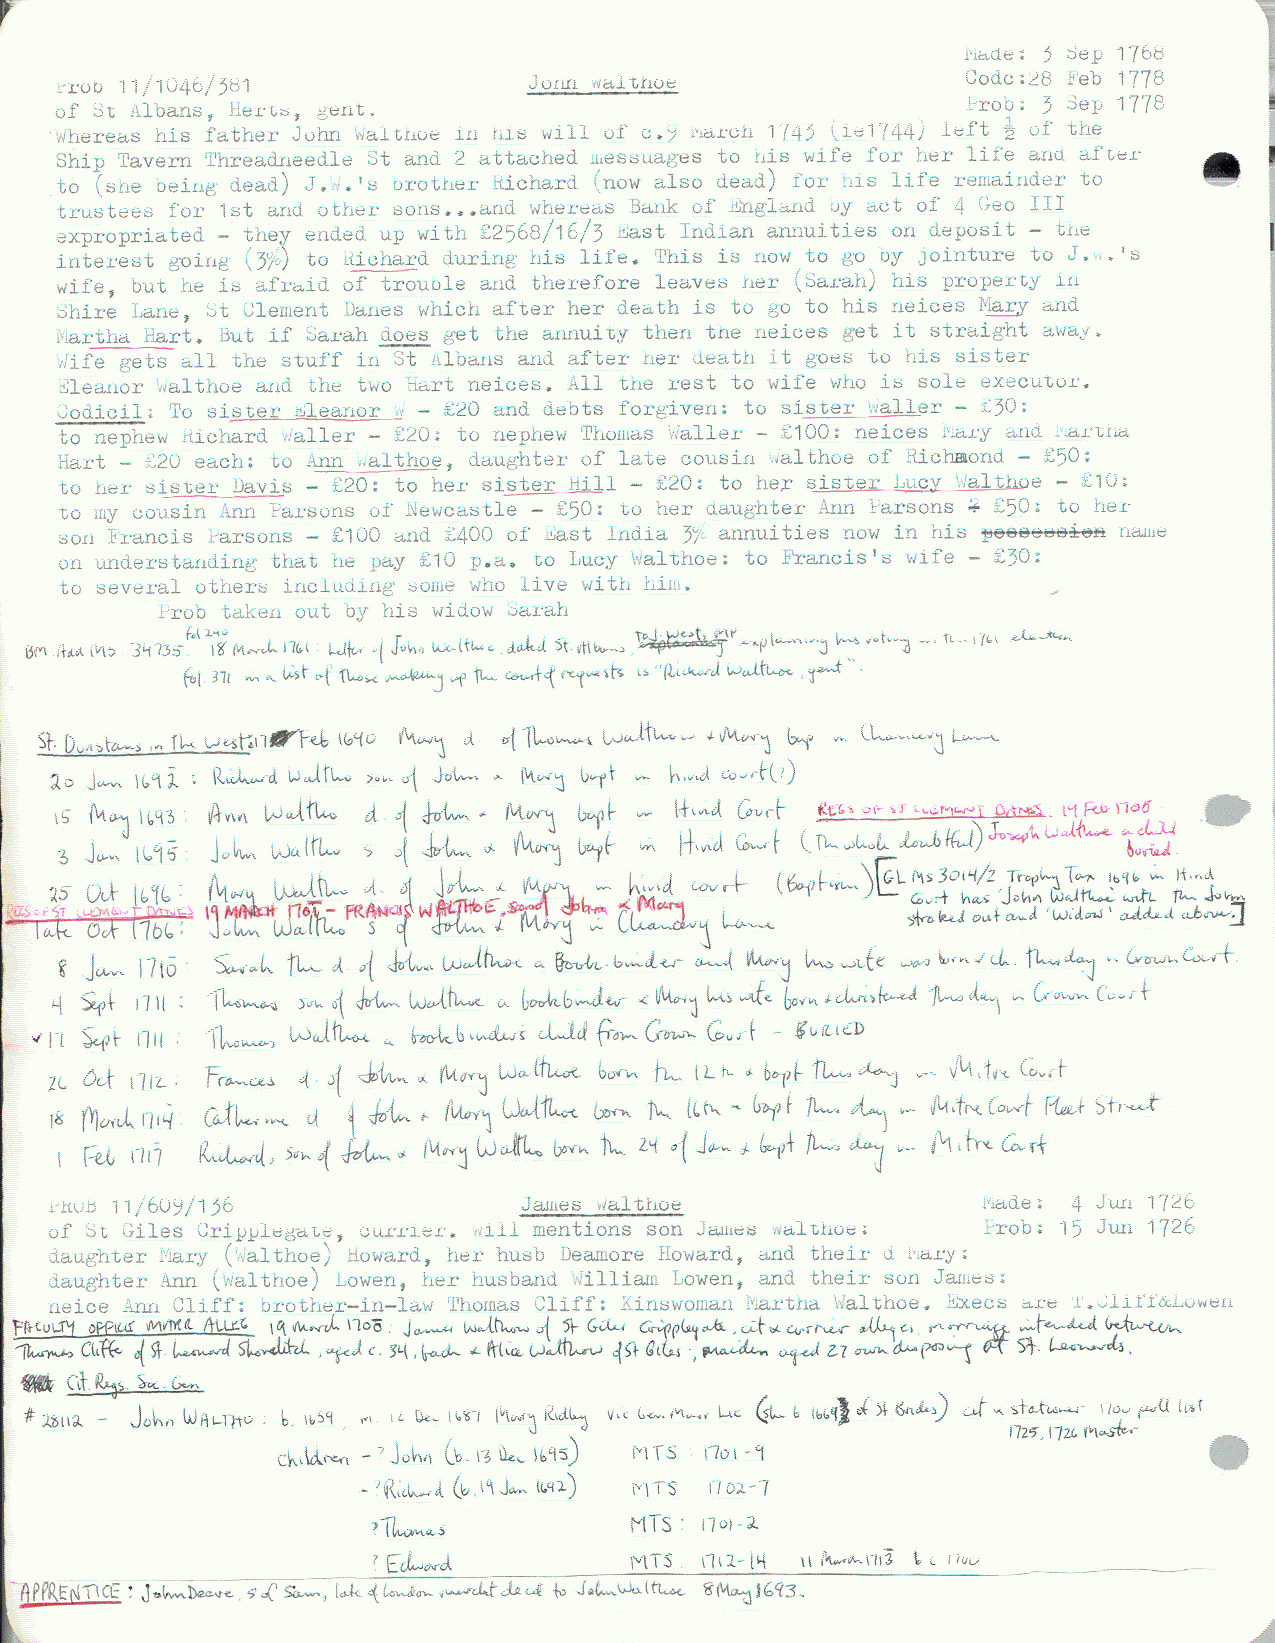 Made: 3 Sep 1768
Prob 11/1046/381 John Walthoe Codc:28 Feb 1778
of St Albans, Herts, gent. Prob: 3 Sep 1778
Whereas his father John Walthoe in his will of c.9 March 1743 (ie1744) left ½ of the
Ship Tavern Threadneedle St and 2 attached messuages to his wife for her life and after
to (she being dead) J.W.'s brother Richard (now also dead) for his life remainder to
trustees for 1st and other sons...and whereas Bank of England by act of 4 Geo III
expropriated - they ended up with £2568/16/3 East Indian annuities on deposit - the
interest going (3%) to Richard during his life. This is now to go by jointure to J.W.'s
wife, but he is afraid of trouble and therefore leaves her (Sarah) his property in
Shire Lane, St Clement Danes which after her death is to go to his neices Mary and
Martha Hart. But if Sarah does get the annuity then the neices get it straight away.
Wife gets all the stuff in St Albans and after her death it goes to his sister
Eleanor Walthoe and the two Hart neices. All the rest to wife who is sole executor.
Codicil: To sister Eleanor W - £20 and debts forgiven: to sister Waller - £30:
to nephew Richard Waller - £20: to nephew Thomas Waller - £100: neices Mary and Martha
Hart - £20 each: to Ann Walthoe, daughter of late cousin Walthoe of Richmond - £50:
to her sister Davis - £20: to her sister Hill - £20: to her sister Lucy Walthoe - £10:
to my cousin Ann Parsons of Newcastle - £50: to her daughter Ann Parsons £50: to her
son Francis Parsons - £100 and £400 of East India 3% annuities now in his possession name
on understanding that he pay £10 p.a. to Lucy Walthoe: to Francis's wife - £30:
to several others including some who live with him.
Prob taken out by his widow Sarah
BM Add MS 34735. fol 240 18 March 1761: Letter of John Walthoe, dated St. Albans, to J. West, MP explaining his voting in the 1761 election
fol. 371 in a list of those making up the court of requests is "Richard Walthoe, gent".
St. Dunstans in The West: 17 Feb 1690 Mary d. of Thomas Walthow & Mary bap in Chancery Lane
20 Jan 1692 : Richard Waltho son of John & Mary bapt in hind court(?)
15 May 1693: Ann Waltho d. of John & Mary bapt in Hind Court REGS OF ST CLEMENT DANES. 19 Feb 1708
3 Jan 1695: John Waltho s of John & Mary bapt in Hind Court (The whole doubtful) Joseph Walthoe a child
buried.
25 Oct 1696: Mary Waltho d. of John & Mary in hind court (Baptism) [GL Ms 3014/2 Trophy Tax 1696 in Hind
Court has 'John Walthoe' with the John
REGS OF ST CLEMENT DANES 19 MARCH 1701 - FRANCIS WALTHOE, son of John & Mary
stroked out and 'widow' added above.]
late Oct 1706: John Waltho s of John & Mary in Chancery Lane
8 Jan 1710: Sarah the d. of John Walthoe a Book-binder and Mary his wife was born & ch. this day in Crown Court.
4 Sept 1711 : Thomas son of John Walthoe a bookbinder & Mary his wife born & christened this day in Crown Court
✓17 Sept 1711 : Thomas Walthoe a bookbinders child from Crown Court - BURIED
26 Oct 1712: Frances d. of John & Mary Walthoe born the 12th & bapt this day in Mitre Court
18 March 1714: Catherine d of John & Mary Walthoe born the 16th & bapt this day in Mitre Court Fleet Street
1 Feb 1717 Richard, son of John & Mary Waltho born the 24 of Jan & bapt this day in Mitre Court
PROB 11/609/136 James Walthoe Made: 4 Jun 1726
of St Giles Cripplegate, currier. Will mentions son James Walthoe: Prob: 15 Jun 1726
daughter Mary (Walthoe) Howard, her husb Deamore Howard, and their d Mary:
daughter Ann (Walthoe) Lowen, her husband William Lowen, and their son James:
neice Ann Cliff: brother-in-law Thomas Cliff: Kinswoman Martha Walthoe. Execs are T.Cliff&Lowen
FACULTY OFFICE MARR ALLEG 19 March 1708: James Walthow of St Giles Cripplegate, cit & currier alleges marriage intended between
Thomas Cliffe of St. Leonard Shoreditch, aged c. 34, bach & Alice Walthow of St Giles, maiden aged 27 own disposing at St. Leonards.
Cit. Regs. Soc. Gen
# 28112 - John WALTHO: b. 1659 m. 12 Dec 1687 Mary Ridley Vic Gen Marr Lic (she b 1669 of St. Brides) cit & stationer 1700 poll list
1725, 1726 Master
children - ? John (b. 13 Dec 1695) MTS 1701-9
- ? Richard (b. 19 Jan 1692) MTS 1702-7
? Thomas MTS: 1701-2
? Edward MTS. 1712-14 11 March 1713 b c 1700
APPRENTICE: John Deave, s of Sam, late of London, mercht decd to John Walthoe 8 May 1693.